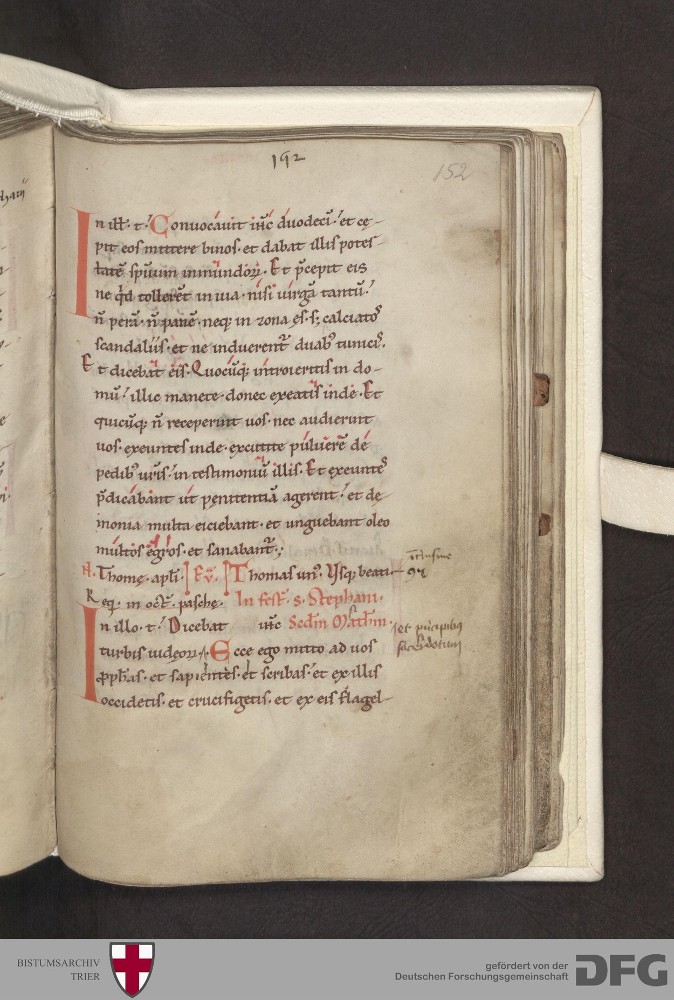 152
152
In ill̄. t̄. Conuocauit ih̄c duodeci̅. et cę-
pit eos mittere binos. et dabat illis potes-
tatē sp̄uum inmundoꝝ. Et p̄cepit eis
ne qd̄ tollerēt in uia. nisi uirgā tantū.
n̄ perā. n̄ panē. neq; in zona ęs. s; calciatos
scandaliis. et ne induerent̄ duab; tunicis.
Et dicebat eis. Quocūq; introieritis in do-
mū. illic manete. donec exeatis inde. Et
quicūq; n̄ receperint uos. nec audierint
uos. exeuntes inde. excutite puluerē de
pedib; ur̄is. in testimoniū illis. Et exeuntes
p̄dicabant ut pęnitentiā agerent. et de-
monia multa eiciebant. et unguebant oleo
multos ęgros. et sanabant̄.
Thomę. apl̄i. Eꝟ. Thomas un̄. Vsq; beati
Req̄. in oct̄. paschę. In fest̄. s. Stephani.
In illo. t̄. Dicebat ih̄c Scd̄m Math̄m.
turbis iudeoꝝ. Ecce ego mitto ad uos
p̄ph̄as. et sapientes. et scribas. et ex illis
occidetis. et crucifigetis. et ex eis flagel-
et principib;
sacerdotum
BISTUMSARCHIV
TRIER
gefördert von der
Deutschen Forschungsgemeinschaft
DFG